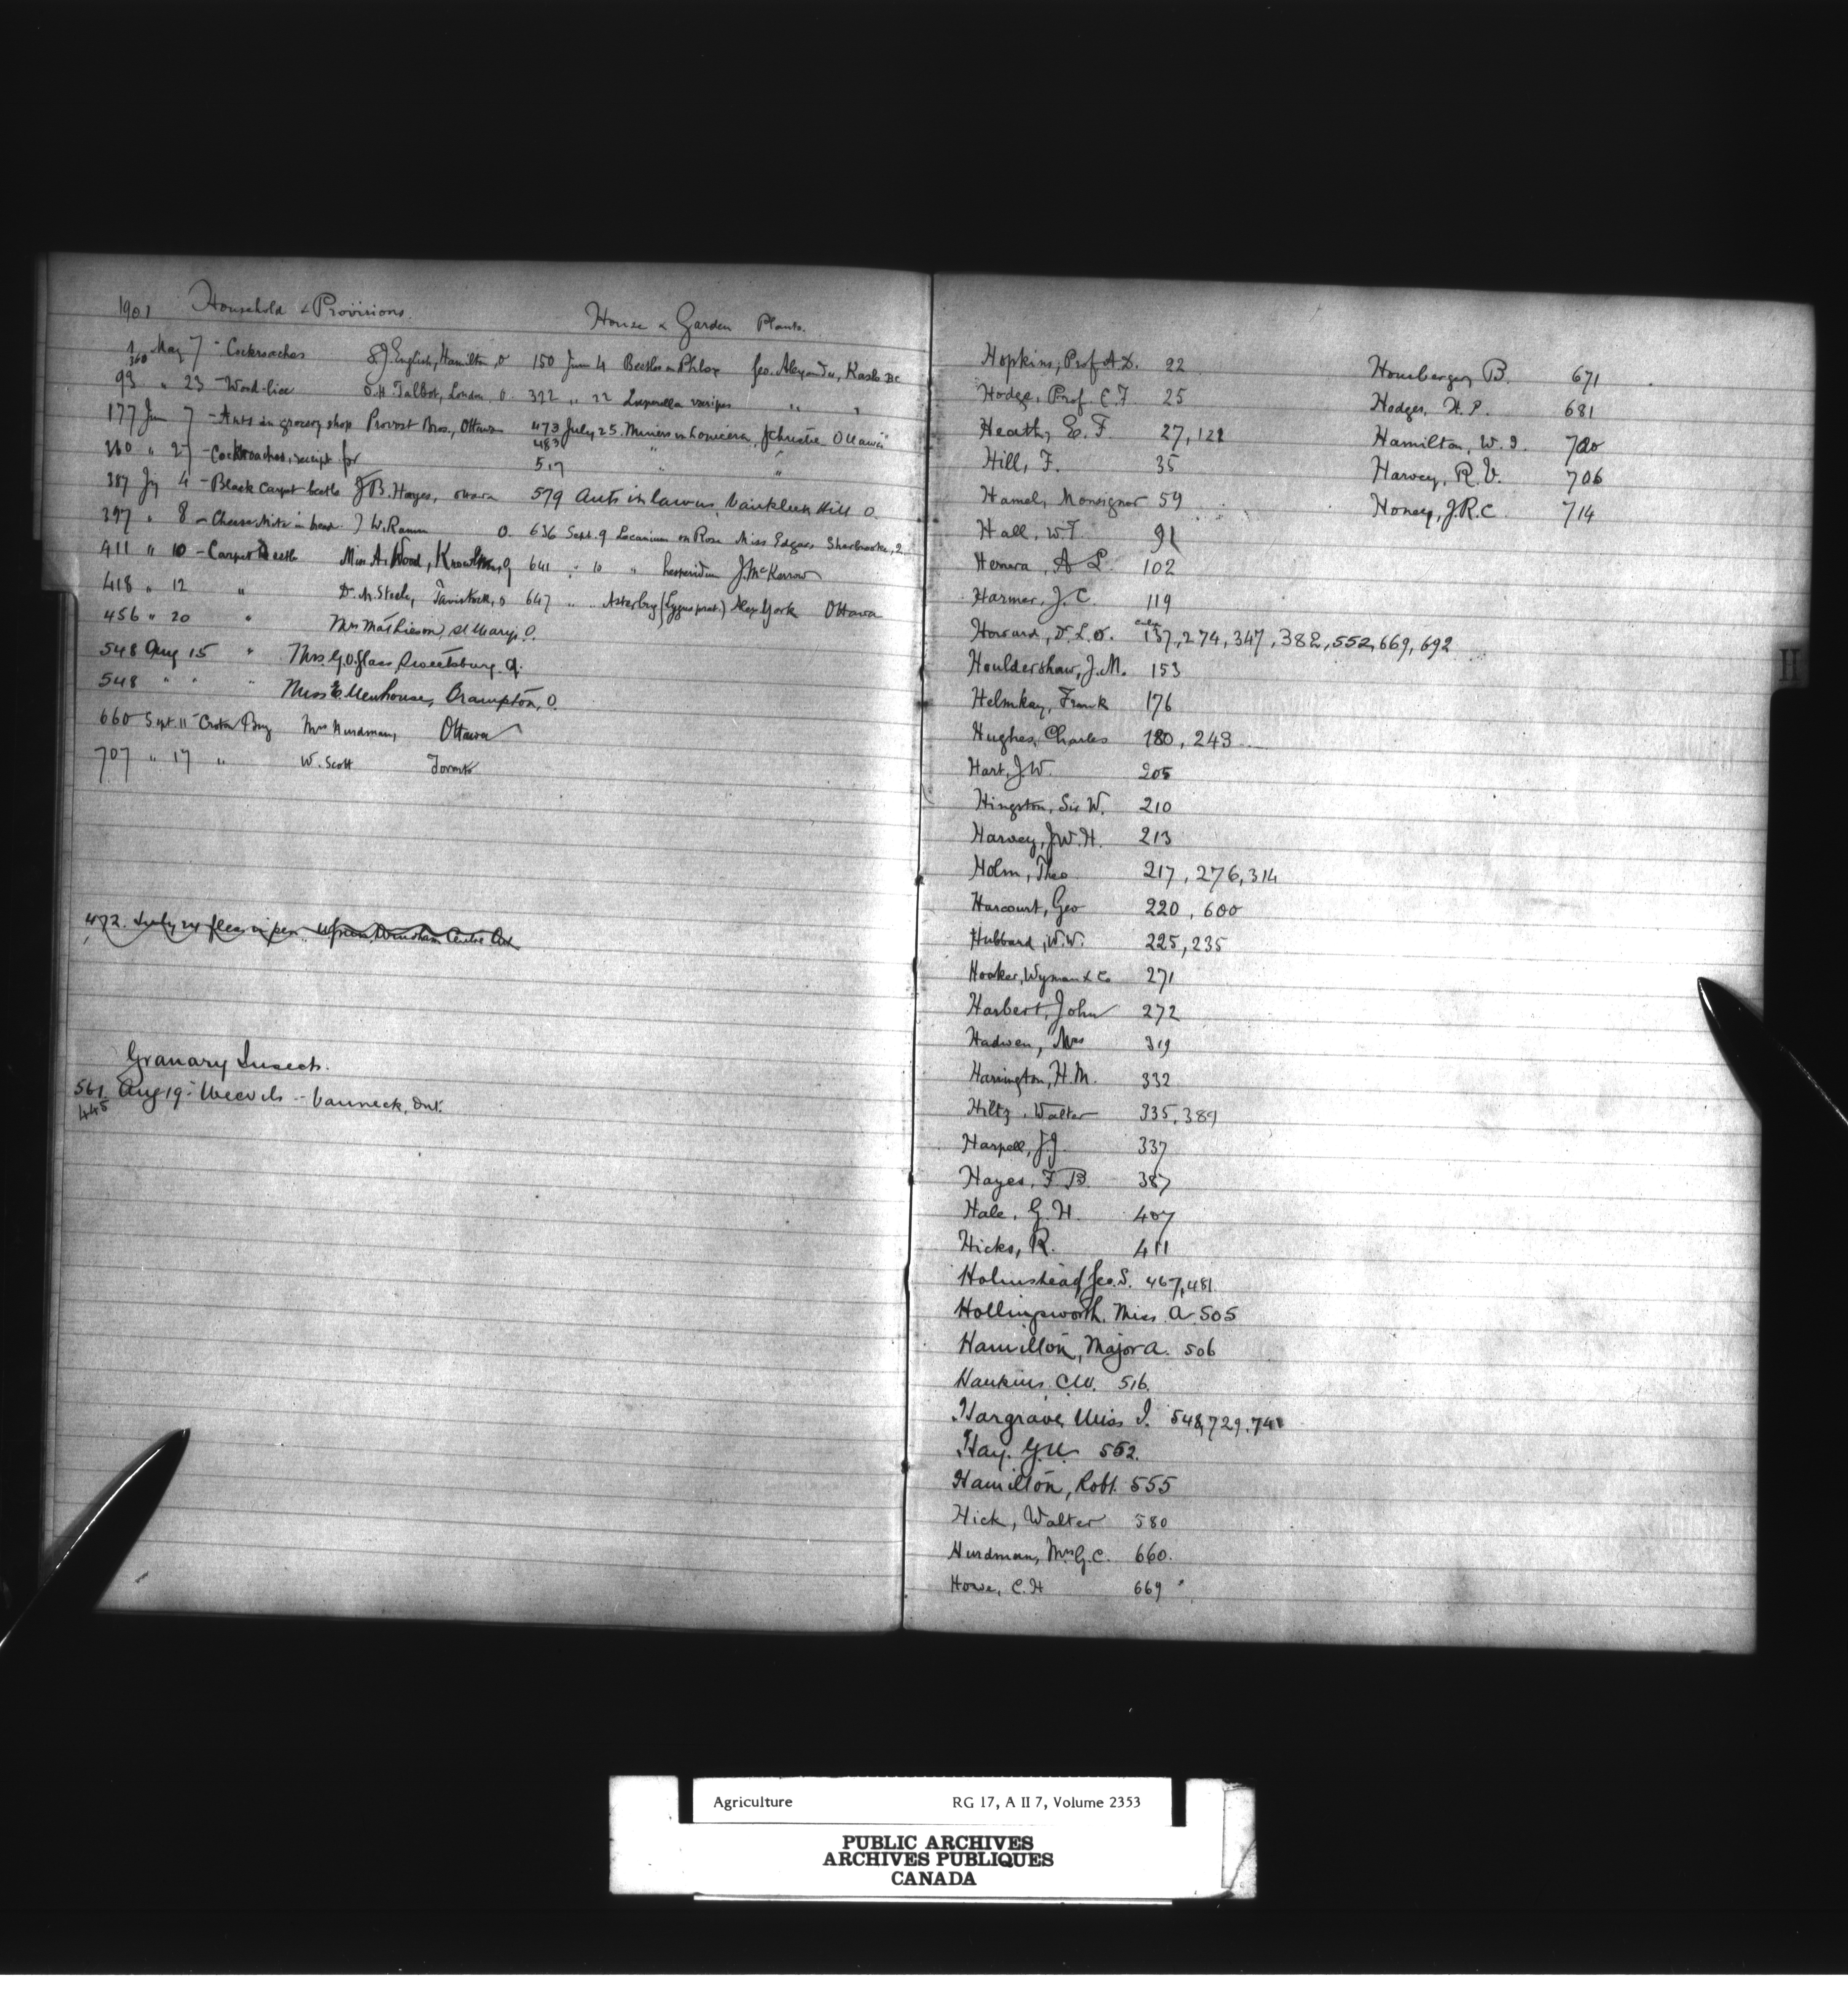 1901 Household & Provisions.
1 May 7 - Cockroaches S J English, Hamilton, O
360
93 " 23 - Wood-lice O.H. Talbot, London, O.
177 Jun 7 - Ants in grocery shop Provost Bros., Ottawa
360 " 27 - Cockroaches, receipt for
387 Jy 4 - Black Carpet beetle F B. Hayes, Ottawa
397 " 8 - Cheese Mite in bread J W. O.
411 " 10 - Carpet Beetle Miss A. Wood, Knowlton, Q
418 " 12 " Dr. M. Steele, Tavistock, O
456 " 20 " Mrs Mathieson, St Marys, O.
548 Aug 15 " Mrs. G.O. Glass, Sweetsburg. Q.
548 " " " Miss E. Menhouse, Brampton, O.
660 Sept. 11 - Croton Bug Mrs Hurdman, Ottawa
707 " 17 " W. Scott Toronto
472. July 24 fleas in pen Windham Centre Ont
Granary Insects.
561. Aug 19 - Weevils -- Vanneck, Ont.
445
House & Garden Plants.
150 Jun 4 Beetles on Phlox Geo. Alexander, Kaslo BC
322 " 22 Luperella varipes " "
473 July 25. Miners in Lonicera, J Christie Ottawa
483
517 " "
579 Ants in lawns, Vankleek Hill O.
636 Sept. 9 Lecanium on Rose Miss Edgar, Sherbrooke, Q
641 " 10 " hesperidum J. McKerrow
647 " " Aster bug (Lygus prat.) Alex York Ottawa
Hopkins, Prof A.D. 22
Hodge, Prof. C.F. 25
Heath, E. F. 27, 122
Hill, F. 35
Hamel, Monsignor 59
Hall, W.T. 91
A L. 102
Harmer, J. C. 119
Howard, D. L. O. 137, 274, 347, 382, 552, 669, 692
Houldershaw, J.M. 153
Helmkay, Frank 176
Hughes, Charles 180, 243
Hart, J.W. 205
Hingston, Sir W. 210
Harvey, J.W.H. 213
Holm, Theo 217, 276, 314
Harcourt, Geo 220, 600
Hubbard, W.W. 225, 235
Hooker, Wyman & Co 271
Harbert, John 272
Hadwen, Mrs 319
Harrington, H.M. 332
Hiltz, Walter 335, 389
Harpell, J.J. 337
Hayes, F B. 387
Hale, G. H. 407
Hicks, R. 411
Holmstead, Geo. S. 467, 481
Hollingsworth, Miss A. 505
Hamilton, Major A. 506
Hankins, C.W. 516.
Hargrave, Miss I. 548, 729, 741
Hay. G.U. 552.
Hamilton, Robt. 555
Hick, Walter 580
Hurdman, Mrs G.C. 660.
Howe, C.H 669
Homberger, B. 671
Hodges, H. P. 681
Hamilton, W. I. 700
Harvey, R. V. 706
Honey, J.R.C. 714
H
Agriculture RG 17, A II 7, Volume 2353
PUBLIC ARCHIVES
ARCHIVES PUBLIQUES
CANADA